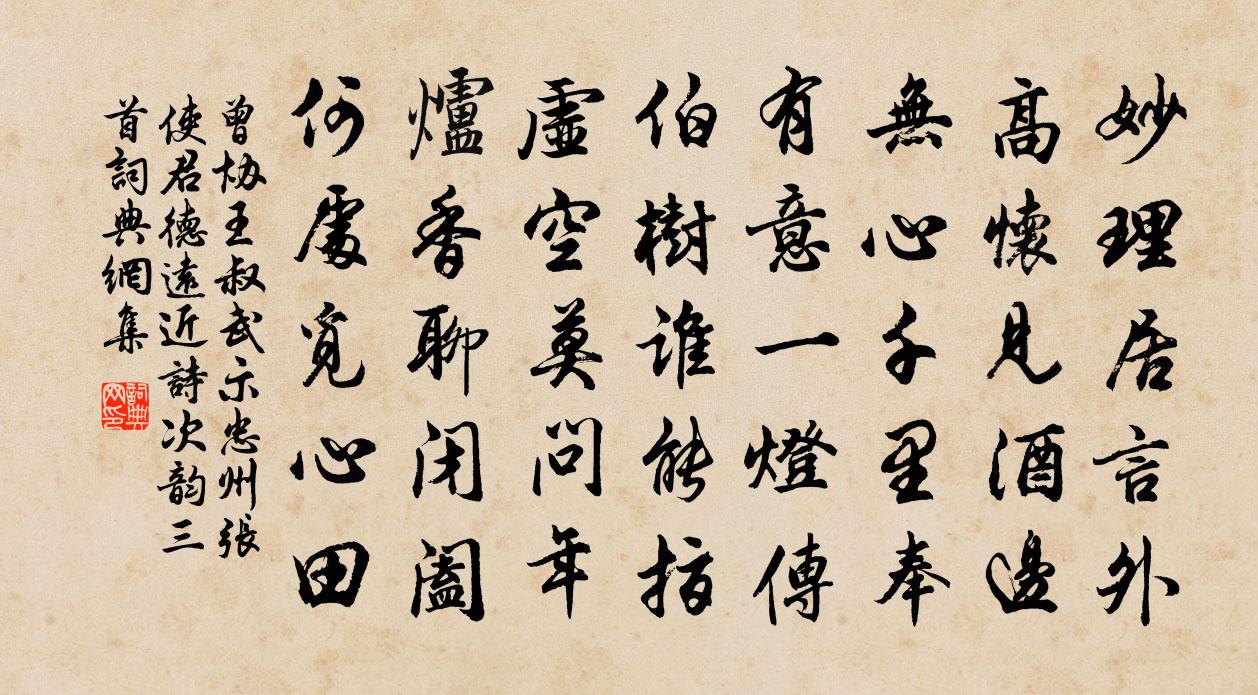 妙理居言外
高懷見酒邊
無心千里奉
有意一燈傳
伯樹誰能指
虛空莫問年
爐香聊閉闔
何處覓心田
曾協王叔武示忠州張
使君德遠近詩次韵三
首詞典網集
詞典
网印